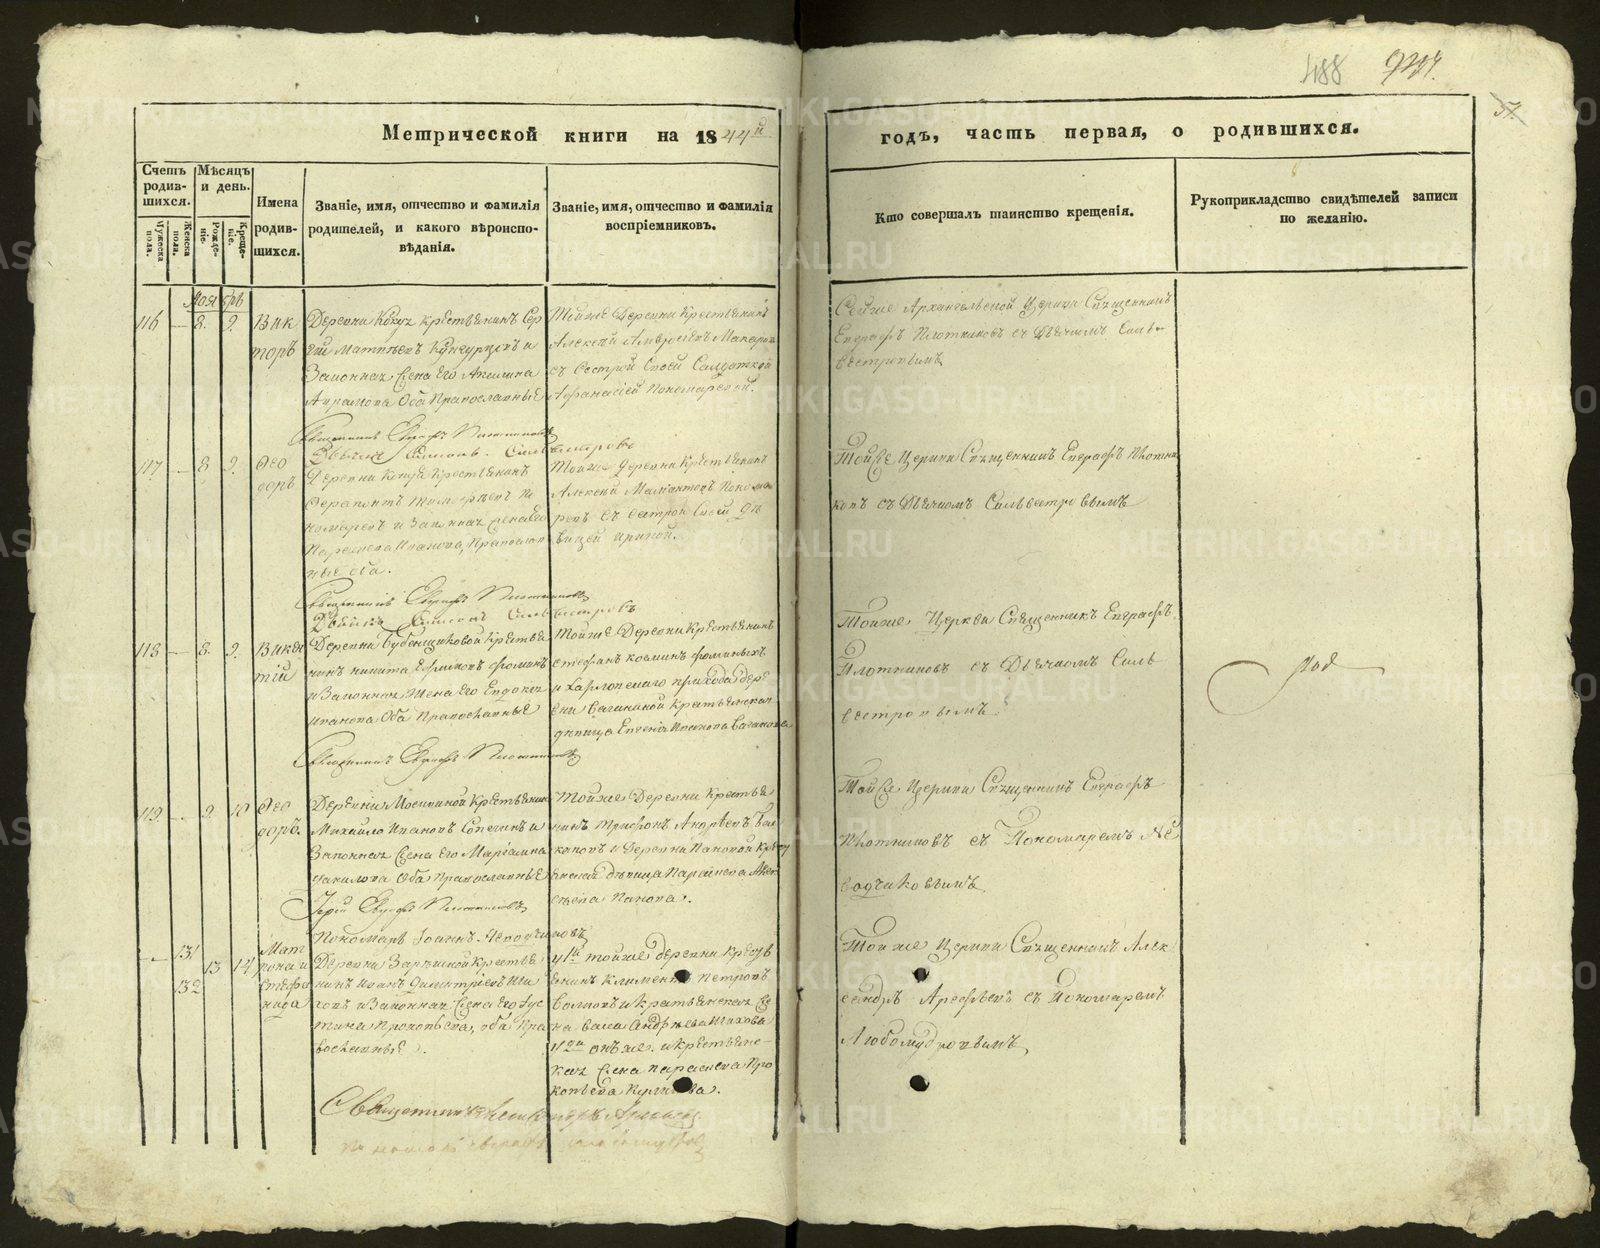 488
57
Метрической книги на 1844й
годъ, часть первая, о родившихся.
Счетъ родив-шихся.
Мужеска пола.
Женска пола.
Мѣсяцъ и день.
Рожде-нiе.
Креще-нiе.
Имена родив-шихся.
Званiе, имя, отчество и фамилiя
родителей, и какого вѣроиспо-
вѣданiя.
Званiе, имя, отчество и фамилiя
воспрiемниковъ.
Кто совершалъ таинство крещенiя.
Рукоприкладство свидѣтелей записи
по желанiю.
Ноябрь
116 8. 9. Вик
торъ
Деревни Кокуя крестьянинъ Сер
гѣй Матвѣевъ Кунгурцевъ и
Законная жена его Акилина
Абрамова Оба Православные
Тойже Деревни крестьянинъ
Алексѣй Амвросьевъ Макаровъ
съ сестрой своей Солдаткой
Афанасiей Пономаревой.
Сейже Архангельской Церкви Священникъ
Евграфъ Плотниковъ съ Дьячкомъ Силь-
вестровымъ
Священникъ Евграфъ Плотниковъ
Дьячекъ Сильвестровъ
117 8 9. Фео
доръ
Деревни Кокуя Крестьянинъ
Ферапонтъ Тимофеевъ По
номаревъ и Законная жена его
Параскева Иванова, Православ
ные оба.
Тойже Деревни Крестьянинъ
Алексѣй Мамонтовъ Понома
ревъ съ сестрой своей Дѣ
вицей Ириной.
Тойже Церкви Священникъ Евграфъ Плотни
ковъ съ Дьячкомъ Сильвестровымъ
Священникъ Евграфъ Плотниковъ
Дьячекъ Сильвестровъ
118 8. 9. Викен
тiй
Деревни Бубенщиковой Крестья
нинъ никита Ефимовъ фоминъ
и Законная Жена его Евдокiя
иванова Оба Православные
Тойже Деревни Крестьянинъ
стефанъ козминъ фоминыхъ
и Харлопскаго прихода дере
вни Вагиной Крестьянская
дѣвица Евгенiя Иванова Вагинова
Тойже Церкви Священникъ Евграфъ
Плотниковъ съ Дьячкомъ Силь
вестровымъ
Священникъ Евграфъ Плотниковъ
119. 9. 10 Фео
доръ.
Деревни Мосиной Крестьянинъ
Михайло Ивановъ Сопегинъ и
Законная Жена его Марiамна
Данилова Оба Православные
Тойже Деревни Крестья
нинъ Трифонъ Андреевъ
и Деревни Пановой Крестья
нская дѣвица Параскева
Панова.
Тойже Церкви Священникъ Евграфъ
Плотниковъ съ Пономаремъ Че
водчиковымъ
Iерей Евграфъ Плотниковъ
Пономарь Iоаннъ Чеводчиковъ
131
132 13 14 Мат
рона и
Стефа
нида
Деревни Зарѣчной Крестья
нинъ Иванъ Димитрiевъ Ши
ховъ и Законная Жена его Iус
тина Прокопьева, оба Пра
вославные.
у 1й тойже деревни Крестья
нинъ Климентъ Петровъ
Волковъ и Крестьянская Же
на Васса Андреева Шихова
у 2й онъ же. и Крестьянс
кая Жена Параскева Про
копьева.
Тойже Церкви Священникъ Алек
сандръ Арефьевъ съ Пономаремъ
Любомудровымъ
Священникъ Александръ Арефьевъ